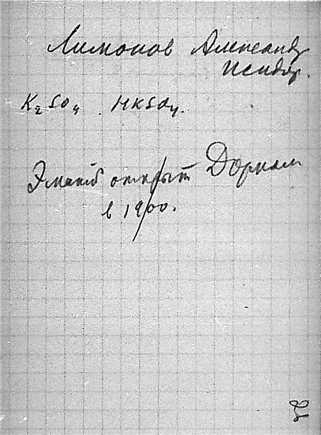 Лимонов Александр
Исидор.
K₂SO₄. HKSO₄.
открыт Дорном
в 1900.